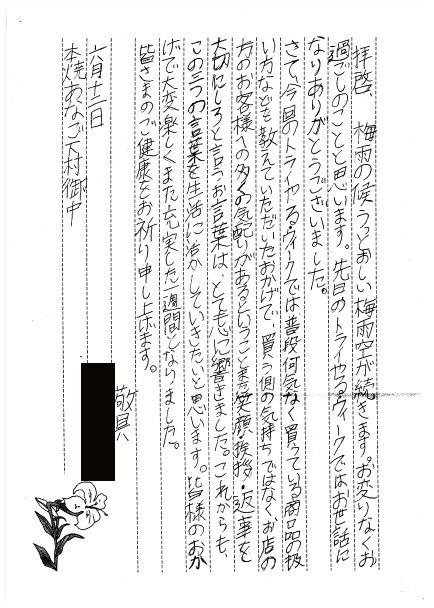 拝啓、梅雨の候うっとおしい梅雨空が続きます。お変りなくお
過ごしのことと思います。先日のトライやる・ウィークではお世話に
なりありがとうございました。
さて、今回のトライやる・ウィークでは普段何気なく買っている商品の扱
い方などを教えていただいたおかげで、買う側の気持ちではなくお店の
方のお客様への多くの気配りがあるということまた笑顔・挨拶・返事を
大切にしろと言うお言葉は、とても心に響きました。これからも、
この三つの言葉を生活に活かしていきたいと思います。皆様のおか
げで大変楽しくまた充実した一週間となりました。
皆さまのご健康をお祈り申し上げます。
敬具
六月十二日
本焼あなご下村御中